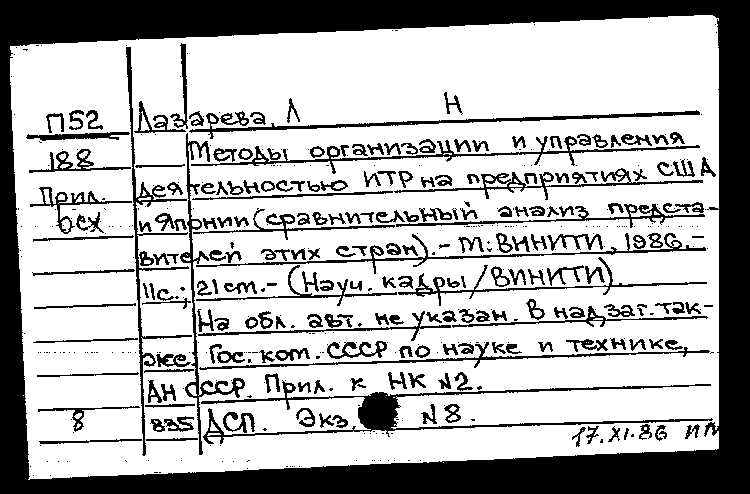 П52 Лазарева, Л Н
188 Методы организации и управления
Прил. деятельностью ИТР на предприятиях США
осх и Японии (сравнительный анализ предста-
вителей этих стран).- М.: ВИНИТИ, 1986.-
11с.; 21 см.- (Науч. кадры / ВИНИТИ).
На обл. авт. не указан. В надзаг. так-
же: Гос. ком. СССР по науке и технике,
АН СССР. Прил. к НК №2.
8 835 ДСП. Экз. №8.
17.XI.86